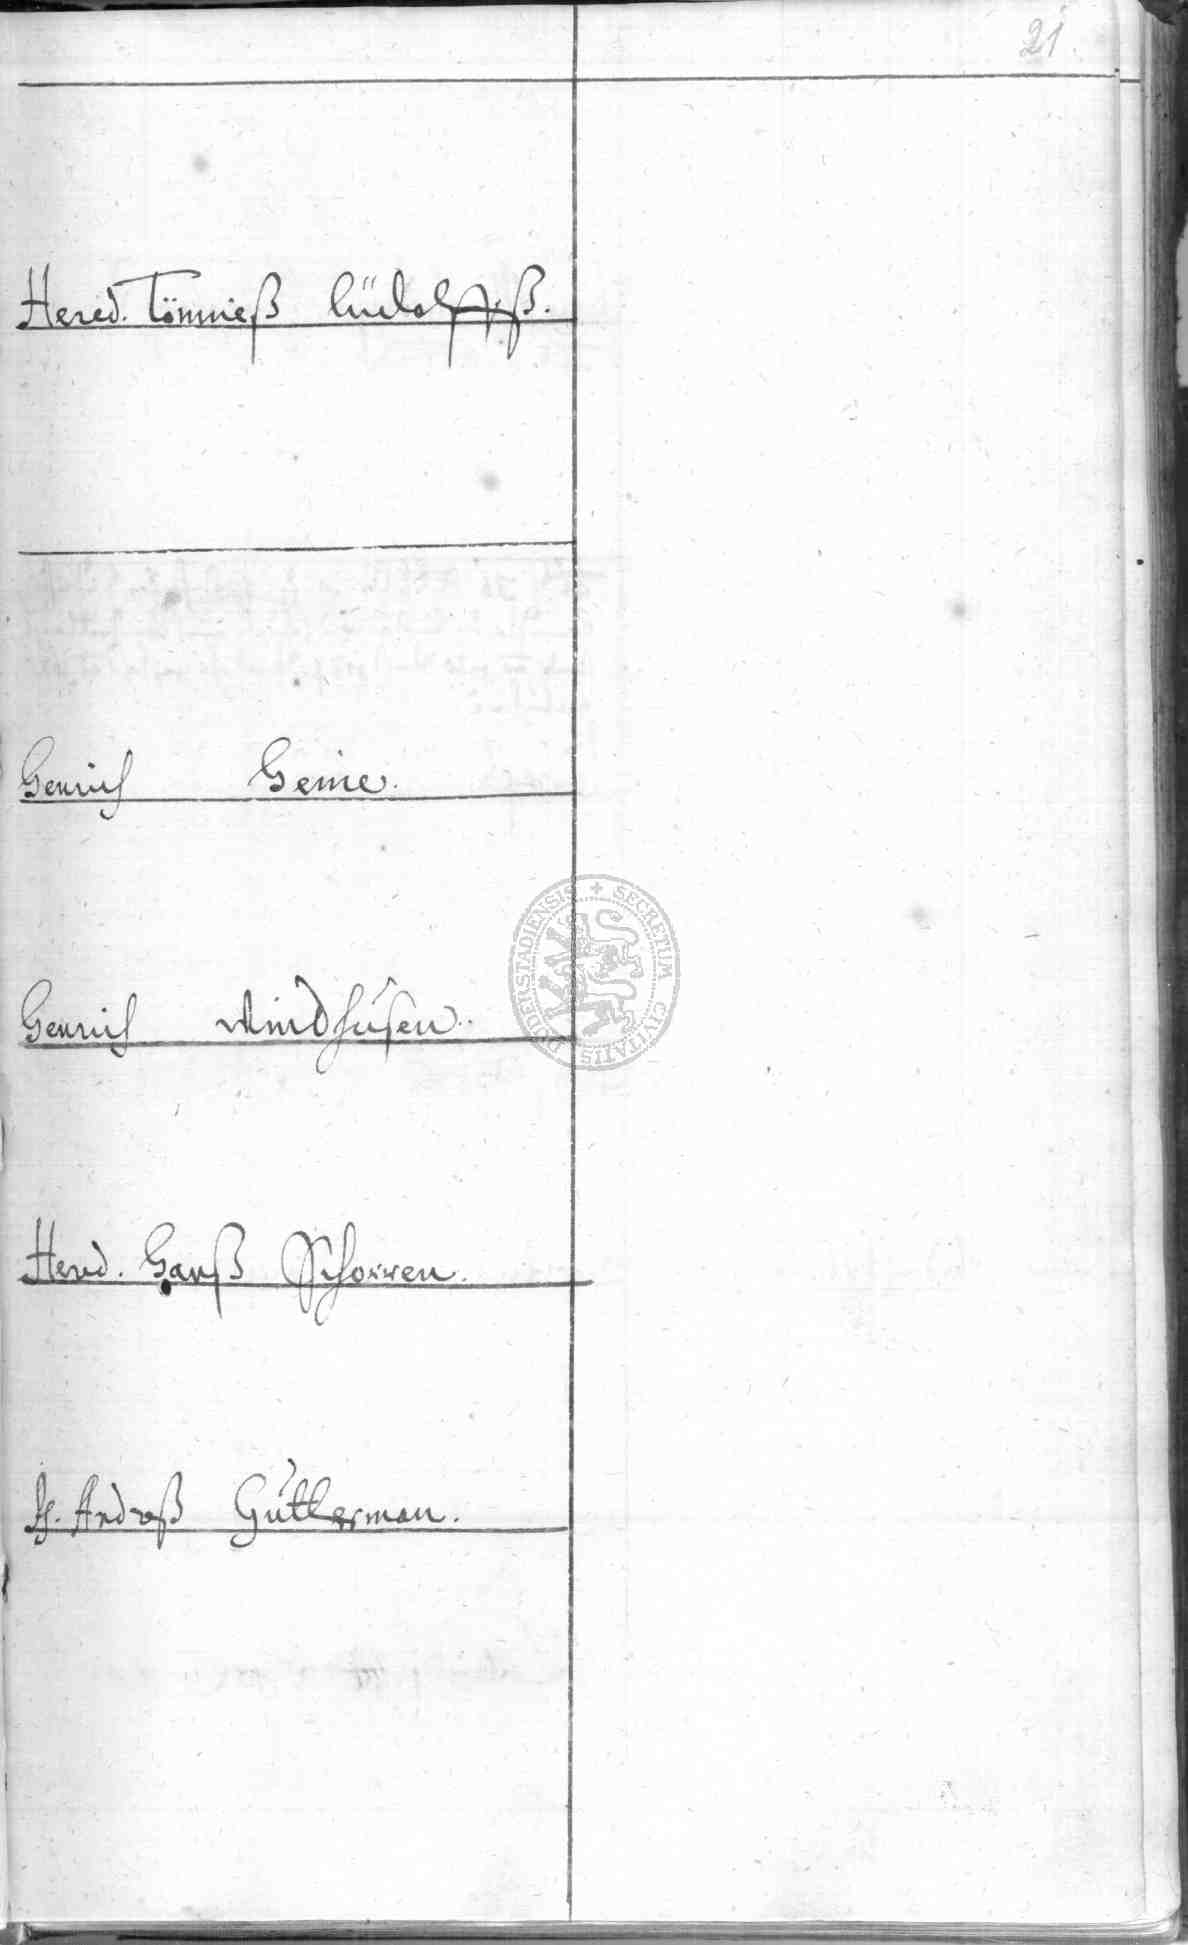 21.
Hered. Tönnieß Lüdolffß.
Henrich Heine.
Henrich Windhusen.
Hered. Hanß Schorren.
H. Andreß Gütterman.
SECRETUM CIVITATIS DUDERSTADIENSIS